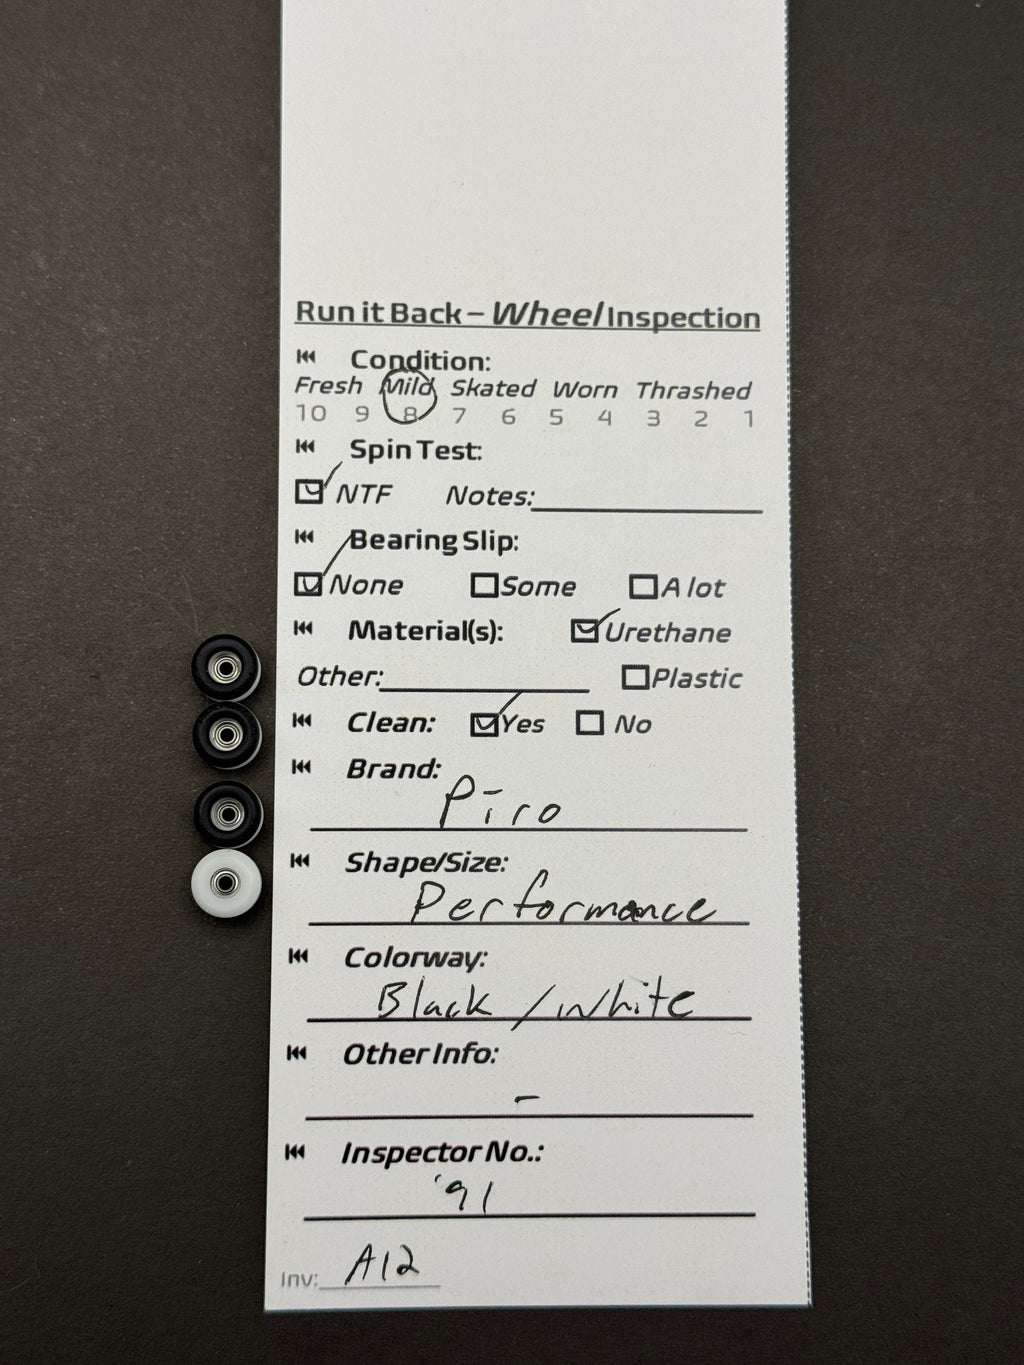 Run it Back – Wheel Inspection
Condition:
Fresh Mild Skated Worn Thrashed
10 9 8 7 6 5 4 3 2 1
Spin Test:
NTF Notes:
Bearing Slip:
None Some A lot
Material(s): Urethane
Other: Plastic
Clean: Yes No
Brand:
Piro
Shape/Size:
Performance
Colorway:
Black / White
Other Info:
-
Inspector No.:
'91
Inv: A12